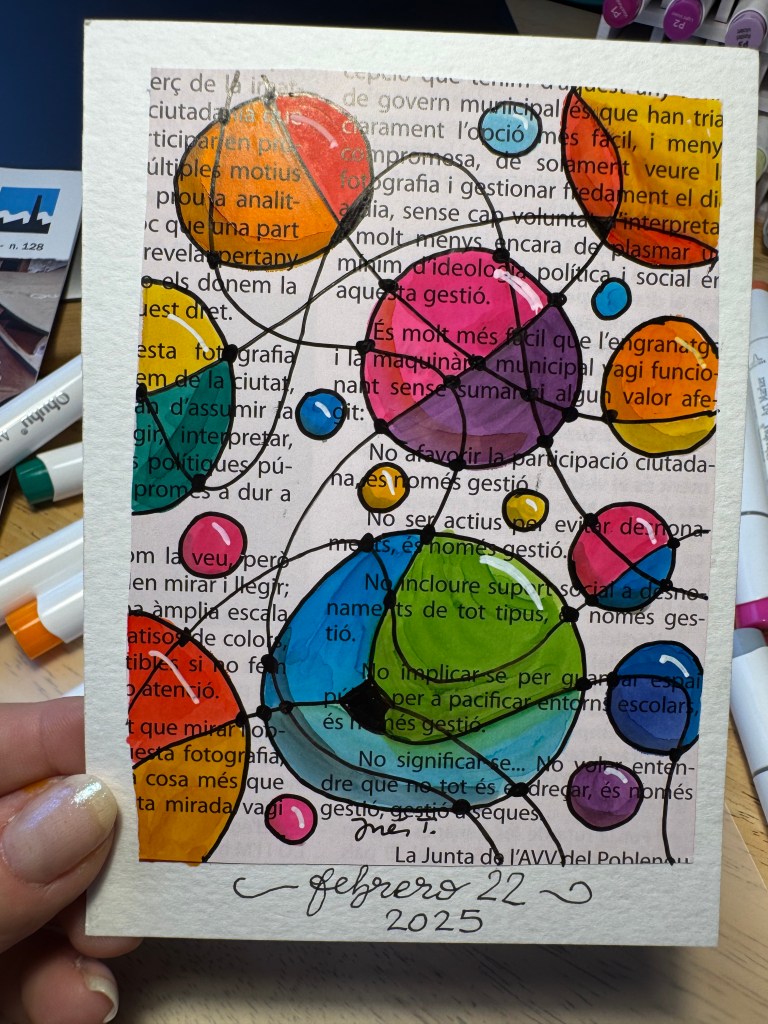 P1
P2
erç de la
ciutadana que
rticipar en
últiples motius
prou a analit-
oc que una part
revela pertany
o ols donem la
uest dret.
esta fotografia
em de la ciutat,
an d'assumir la
gir, interpretar,
s polítiques pú-
promès a dur a
om la veu, però
en mirar i llegir;
na àmplia escala
atisos de colors,
tibles si no fem
p atenció.
t que mirar l'ob-
uesta fotografia,
cosa més que
ta mirada vagi
cepció que tenim d'aquest
de govern municipal és que han tria
clarament l'opció més fàcil, i meny
compromesa, de solament veure l
fotografia i gestionar fredament el di
a dia, sense cap voluntat d'interpreta
molt menys encara de plasmar u
mínim d'ideologia política i social en
aquesta gestió.
És molt més fàcil que l'engranatge
i la maquinària municipal vagi funcio-
nant sense sumar-hi algun valor afe-
git:
No afavorir la participació ciutada-
na, és només gestió.
No ser actius per evitar desnona-
ments, és només gestió.
No incloure suport social a desno-
naments de tot tipus, és només ges-
tió.
No implicar-se per guanyar espai
públic per a pacificar entorns escolars,
és només gestió.
No significar-se... No voler enten-
dre que no tot és endreçar, és només
gestió, gestió a seques.
Ines T.
La Junta de l'AVV del Poblenou
febrero 22
2025
- n. 128
Ohuhu